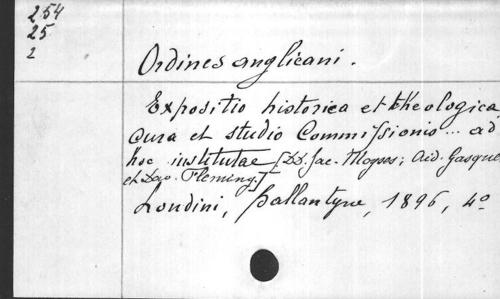 254
25
2
Ordines anglicani.
Expositio historica et theologica,
cura et studio Commissionis... ad
hoc institutae [DD. Jac. Moyes; Aid. Gasquet
et Dav. Fleming.]
Londini, Ballantyne, 1896, 4º